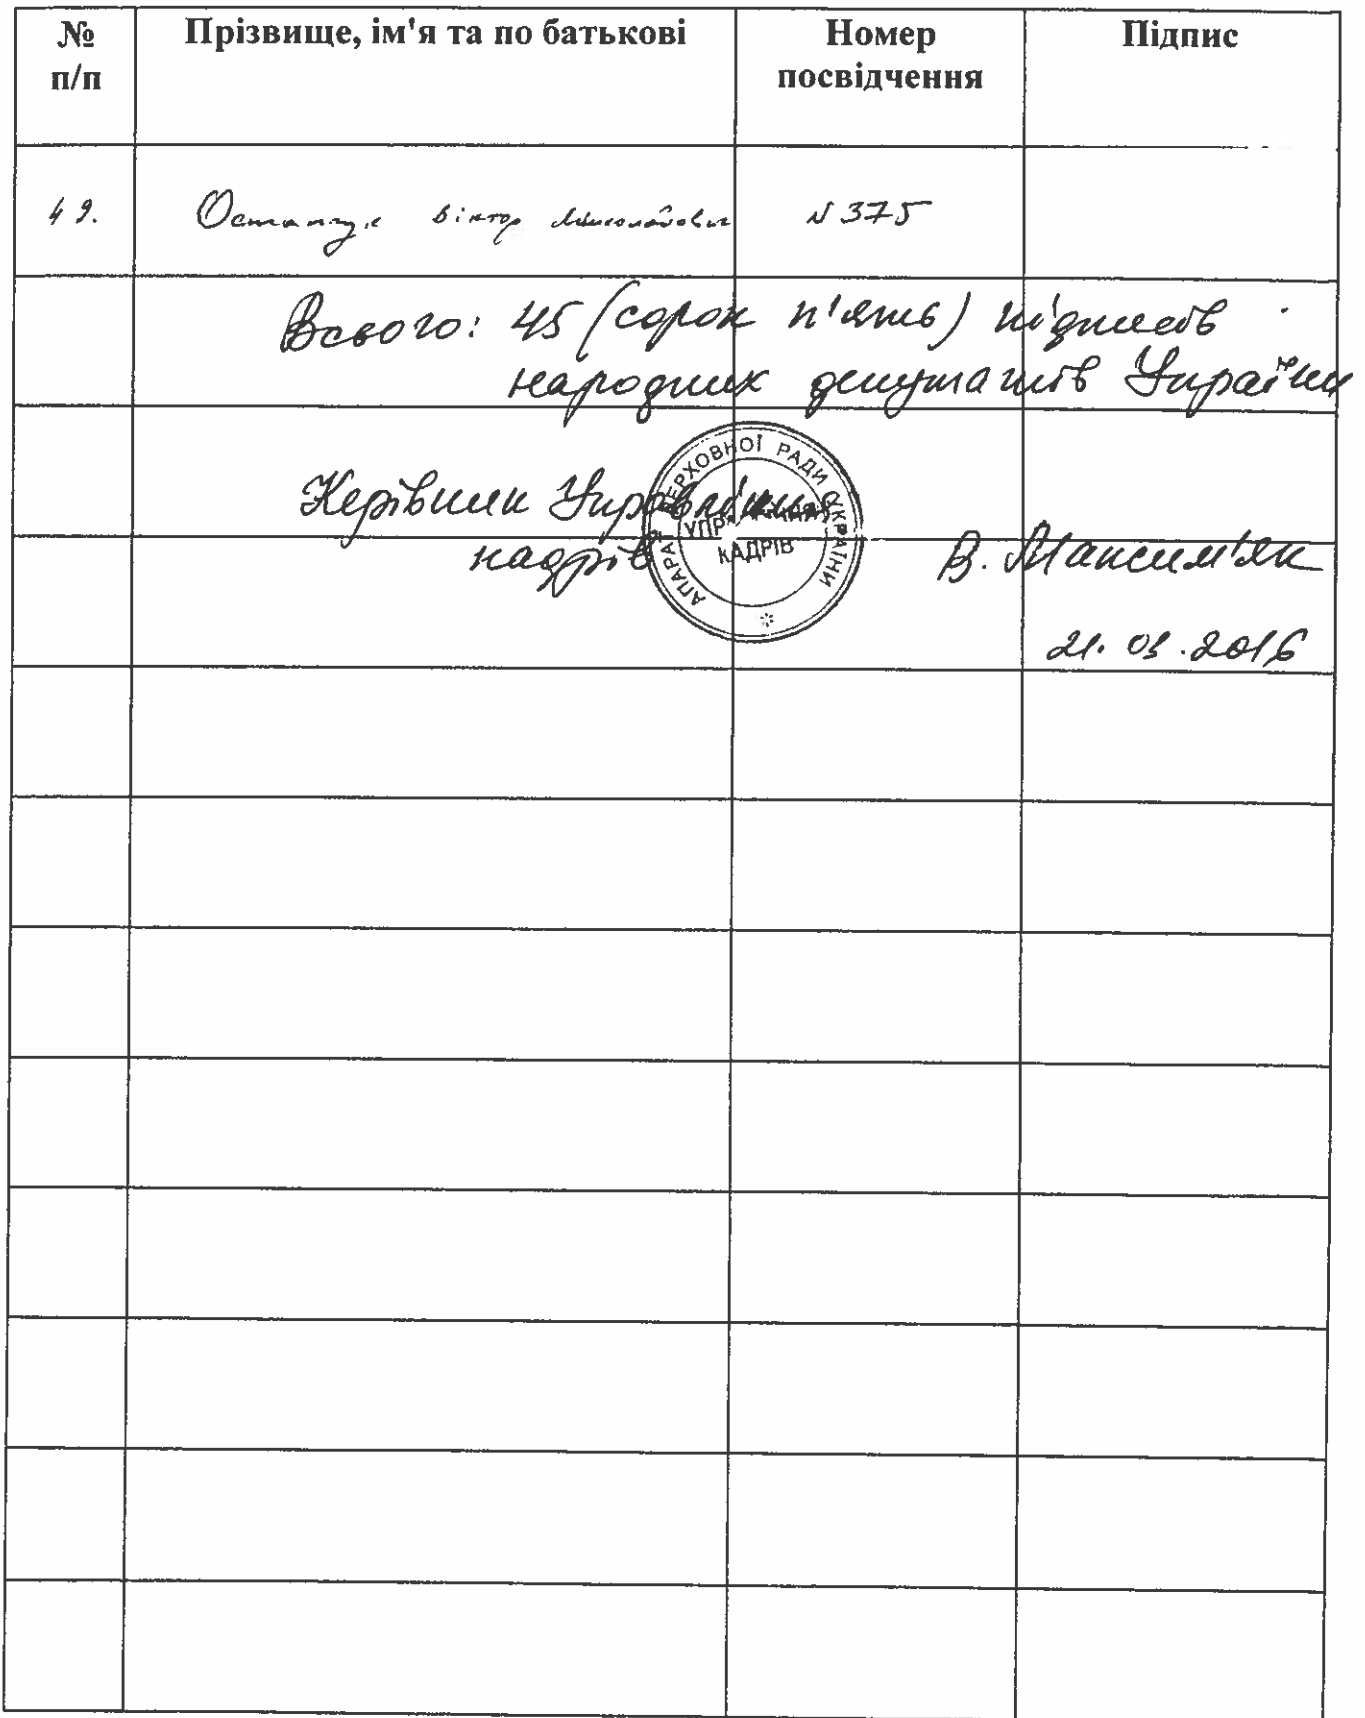 № п/п Прізвище, ім'я та по батькові Номер посвідчення Підпис
49. Остапчук Віктор Миколайович N 375
Всього: 45 (сорок п'ять) підписів
народних депутатів України
Керівник Управління
кадрів В. Максим'як
АПАРАТ ВЕРХОВНОЇ РАДИ УКРАЇНИ
УПРАВЛІННЯ
КАДРІВ